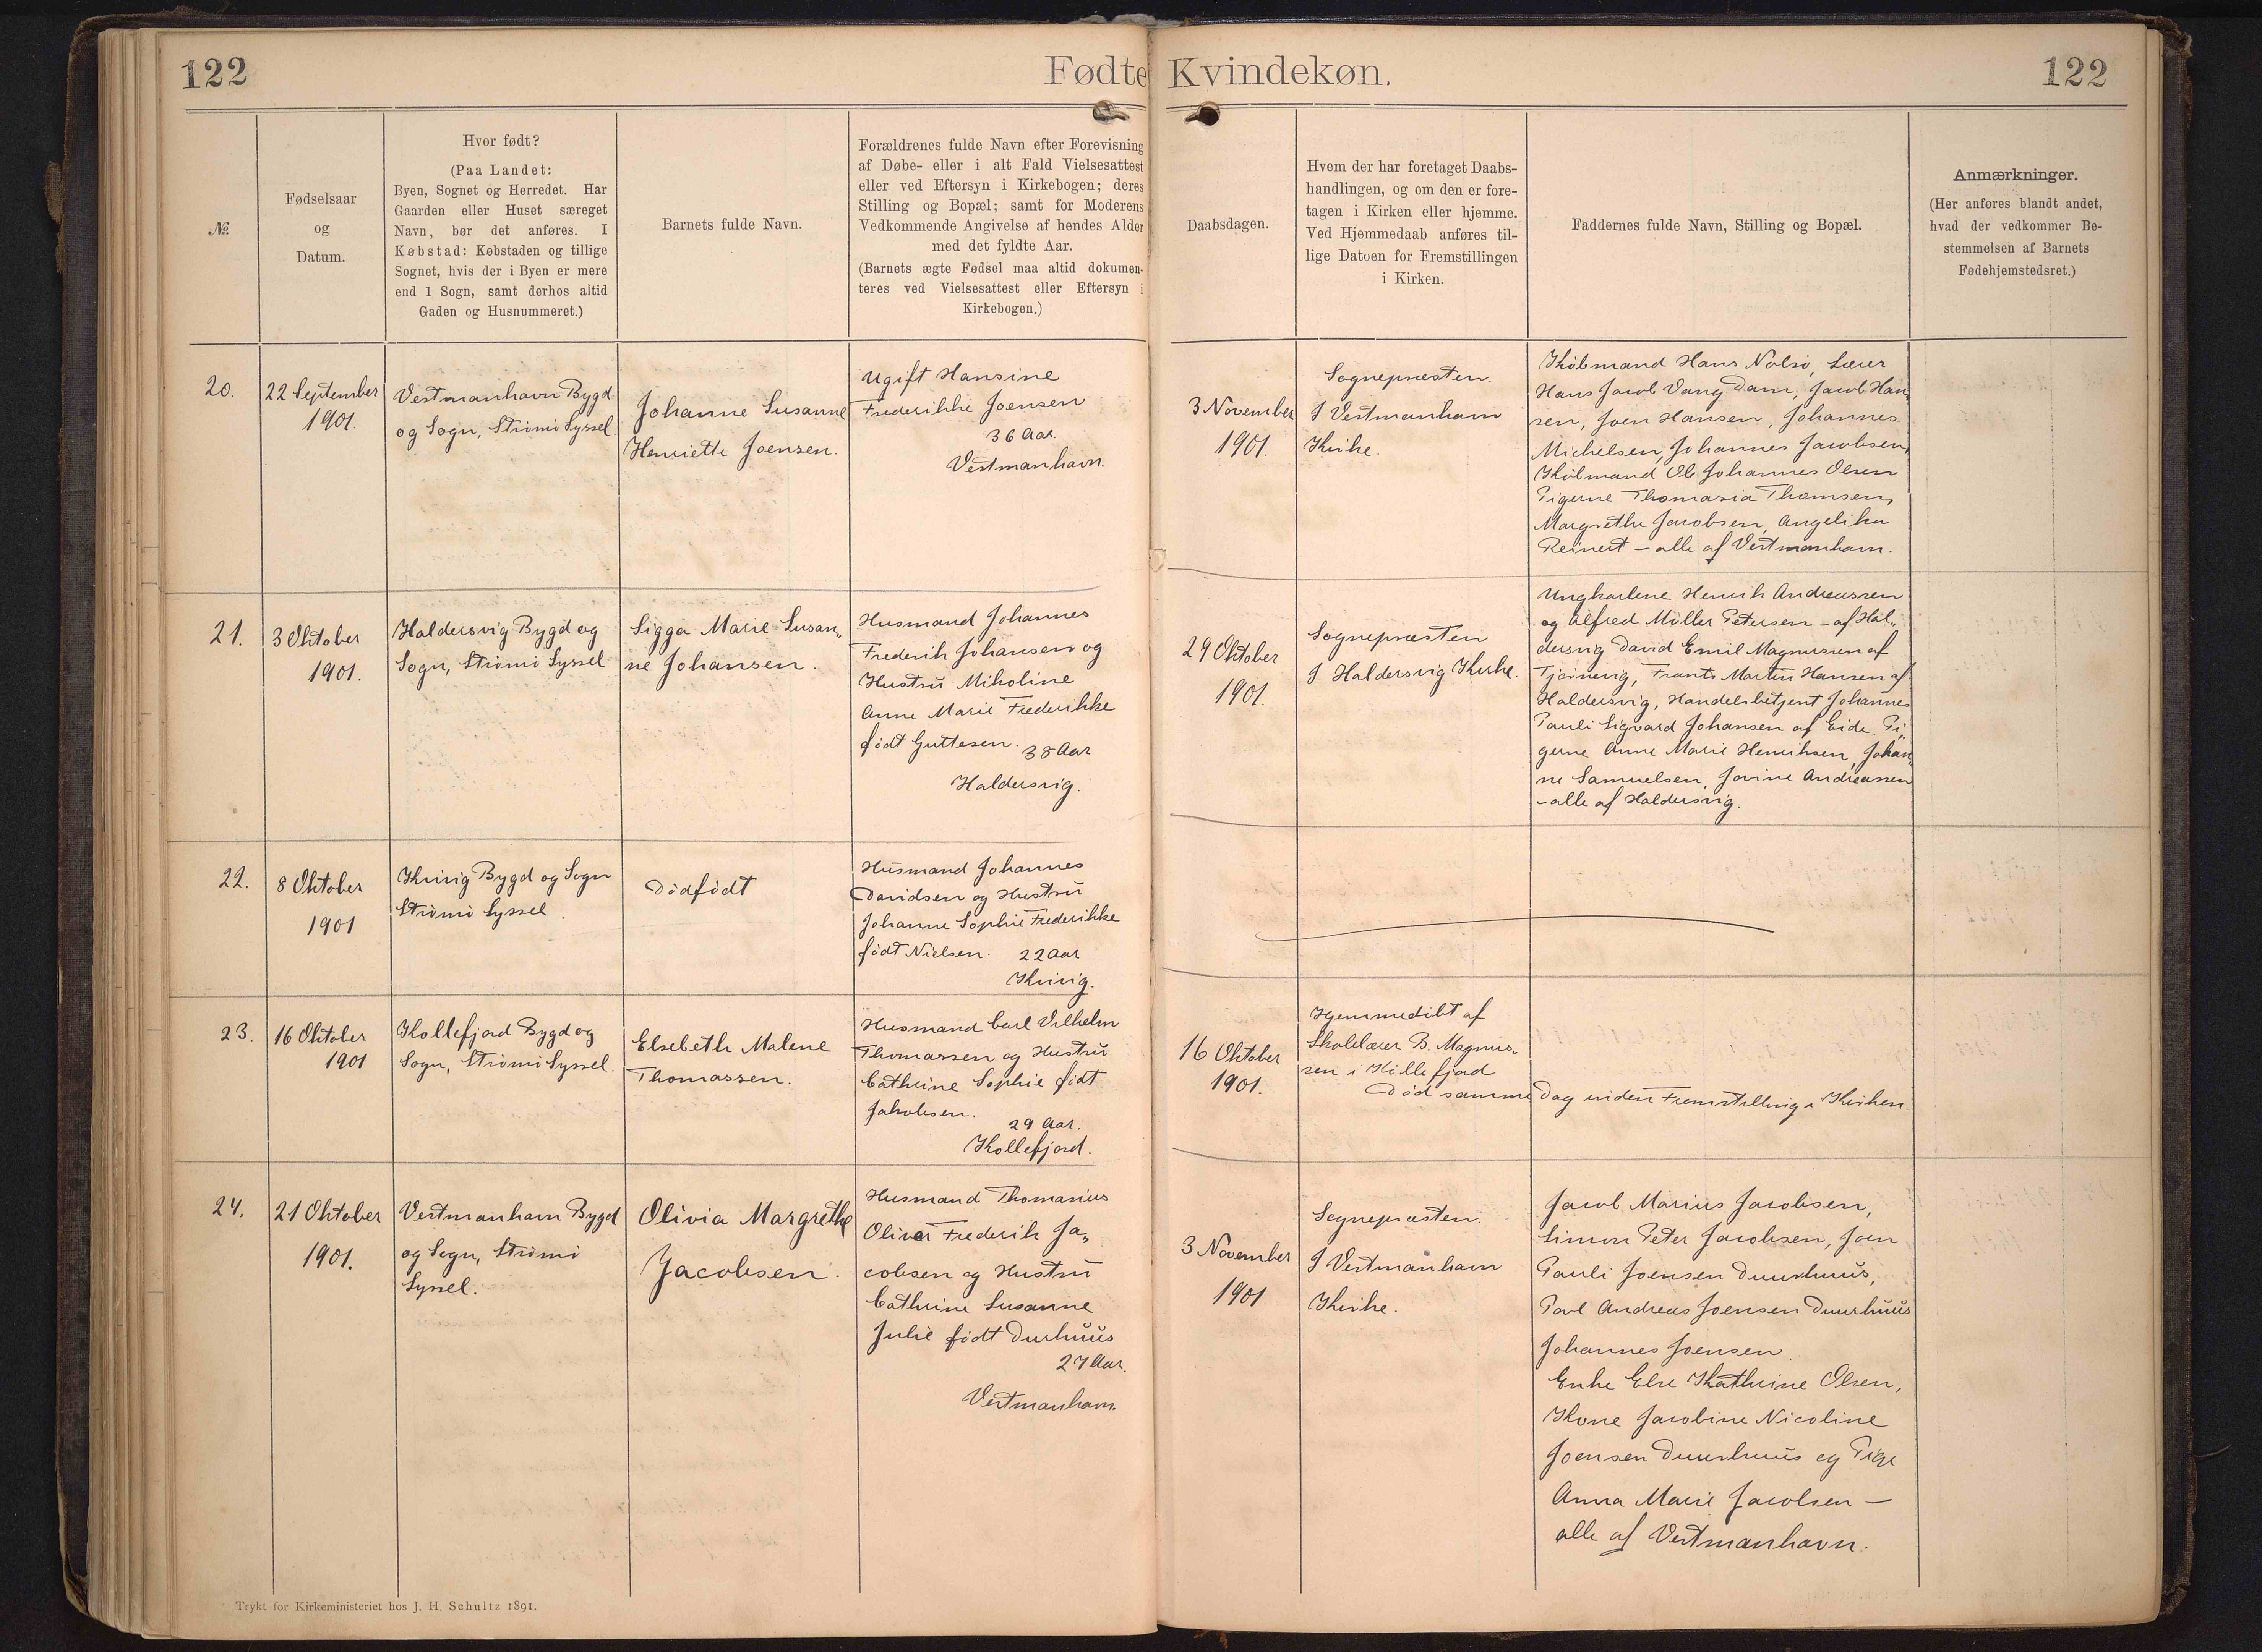 122
Fødte Kvindekøn.
122
№
Fødselsaar
og
Datum.
Hvor født?
(Paa Landet:
Byen, Sognet og Herredet. Har
Gaarden eller Huset særeget
Navn, bør det anføres. I
Købstad: Købstaden og tillige
Sognet, hvis der i Byen er mere
end 1 Sogn, samt derhos altid
Gaden og Husnummeret.)
Barnets fulde Navn.
Forældrenes fulde Navn efter Forevisning
af Døbe- eller i alt Fald Vielsesattest
eller ved Eftersyn i Kirkebogen; deres
Stilling og Bopæl; samt for Moderens
Vedkommende Angivelse af hendes Alder
med det fyldte Aar.
(Barnets ægte Fødsel maa altid dokumen-
teres ved Vielsesattest eller Eftersyn i
Kirkebogen.)
Daabsdagen.
Hvem der har foretaget Daabs-
handlingen, og om den er fore-
tagen i Kirken eller hjemme.
Ved Hjemmedaab anføres til-
lige Datoen for Fremstillingen
i Kirken.
Faddernes fulde Navn, Stilling og Bopæl.
Anmærkninger.
(Her anføres blandt andet,
hvad der vedkommer Be-
stemmelsen af Barnets
Fødehjemstedsret.)
20.
22 September
1901.
Vestmanhavn Bygd
og Sogn, Strömö Syssel.
Johanne Susanne
Henriette Joensen.
Ugift Hansine
Frederikke Joensen
36 Aar.
Vestmanhavn.
3 November
1901.
Sognepræsten.
I Vestmanhavn
Kirke.
Kjöbmand Hans Nolsö, Lærer
Hans Jacob Vang Dam, Jacob Han„
sen, Joen Hansen, Johannes
Michelsen, Johannes Jacobsen,
Kjöbmand Ole Johannes Olsen
Pigerne Thomasia Thomsen,
Margrethe Jacobsen, Angelika
Reinert – alle af Vestmanhavn.
21.
3 Oktober
1901.
Haldersvig Bygd og
Sogn, Strömö Syssel
Sigga Marie Susan„
ne Johansen.
Husmand Johannes
Frederik Johansen og
Hustru Mikoline
Anne Marie Frederikke
födt Guttesen. 38 Aar
Haldersvig.
29 Oktober
1901.
Sognepræsten
I Haldersvig Kirke.
Ungkarlene Henrik Andreassen
og Alfred Möller Petersen – af Hal„
dersvig David Emil Magnussen af
Tjörnevig, Frants Martin Hansen af
Haldersvig, Handelsbetjent Johannes
Pauli Sigvard Johansen af Eide. Pi„
gerne Anne Marie Henriksen, Johan„
ne Samuelsen, Jovine Andreassen
– alle af Haldersvig.
22.
8 Oktober
1901
Kvivig Bygd og Sogn
Strömö Syssel.
Dödfödt
Husmand Johannes
Davidsen og Hustru
Johanne Sophie Frederikke
födt Nielsen. 22 Aar
Kvivig.
23.
16 Oktober
1901
Kollefjord Bygd og
Sogn, Strömö Syssel.
Elsebeth Malene
Thomassen.
Husmand Carl Vilhelm
Thomassen og Hustru
Cathrine Sophie födt
Jakobsen. 29 Aar.
Kollefjord.
16 Oktober
1901.
Hjemmedöbt af
Skolelærer B. Magnus„
sen i Kollefjord
Död samme Dag uden Fremstilling i Kirken.
24.
21 Oktober
1901.
Vestmanhavn Bygd
og Sogn, Strömö
Syssel.
Olivia Margrethe
Jacobsen.
Husmand Thomasius
Oliver Frederik Ja„
cobsen og Hustru
Cathrine Susanne
Julie födt Durhuus
27 Aar.
Vestmanhavn.
3 November
1901
Sognepræsten
I Vestmanhavn
Kirke.
Jacob Marius Jacobsen,
Simon Peter Jacobsen, Joen
Pauli Joensen Duurhuus,
Poul Andreas Joensen Duurhuus
Johannes Joensen
Enke Else Kathrine Olsen,
Kone Jacobine Nicoline
Joensen Duurhuus og Pige
Anna Marie Jacobsen –
alle af Vestmanhavn.
Trykt for Kirkeministeriet hos J. H. Schultz 1891.